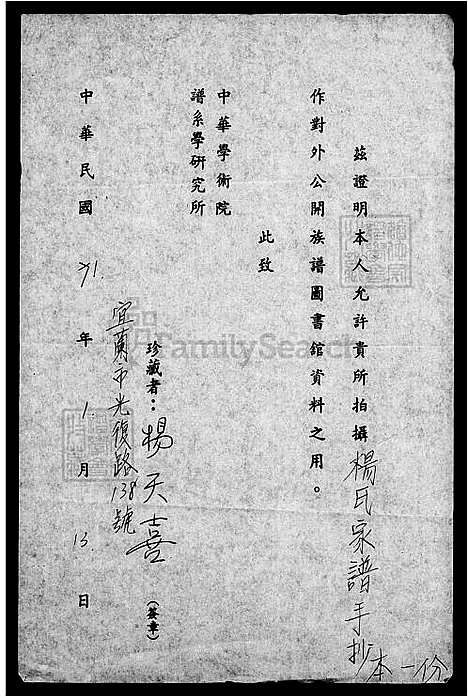 茲證明本人允許貴所拍攝楊氏家譜手抄本一份
作對外公開族譜圖書館資料之用。
此致
中華學術院
譜系學研究所
珍藏者：楊天喜（簽章）
宜蘭市光復路138號
中華民國71.年1.月13.日
FamilySearch